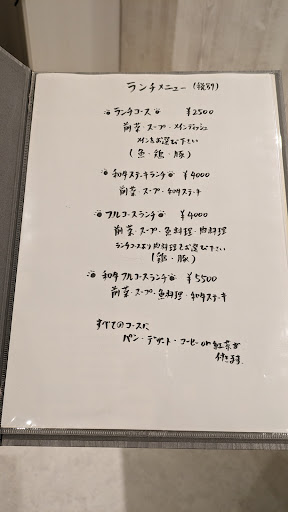 ランチメニュー (税別)
ランチコース ¥2500
前菜・スープ・メインディッシュ
メインをお選び下さい
(魚・鶏・豚)
和牛ステーキランチ ¥4000
前菜・スープ・和牛ステーキ
フルコースランチ ¥4000
前菜・スープ・魚料理・肉料理
ランチコースより肉料理をお選び下さい
(鶏・豚)
和牛フルコースランチ ¥5500
前菜・スープ・魚料理・和牛ステーキ
すべてのコースに
パン・デザート・コーヒーor紅茶が
付きます